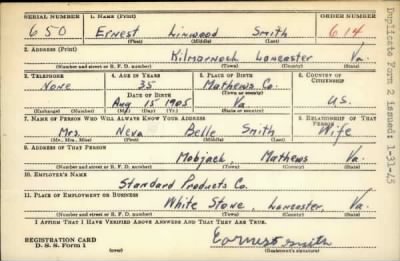 SERIAL NUMBER 1. NAME (Print) ORDER NUMBER
650 Ernest Linwood Smith 614
(First) (Middle) (Last)
2. ADDRESS (Print)
Kilmarnock Lancaster Va.
(Number and street or R. F. D. number) (Town) (County) (State)
3. TELEPHONE 4. AGE IN YEARS 5. PLACE OF BIRTH 6. COUNTRY OF CITIZENSHIP
None 35 Mathews Co.
DATE OF BIRTH (Town or county)
Aug 15 1905 Va. U.S.
(Exchange) (Number) (Mo.) (Day) (Yr.) (State or country)
7. NAME OF PERSON WHO WILL ALWAYS KNOW YOUR ADDRESS 8. RELATIONSHIP OF THAT PERSON
Mrs. Neva Belle Smith Wife
(Mr., Mrs., Miss) (First) (Middle) (Last)
9. ADDRESS OF THAT PERSON
Mobjack, Mathews Va.
(Number and street or R. F. D. number) (Town) (County) (State)
10. EMPLOYER'S NAME
Standard Products Co.
11. PLACE OF EMPLOYMENT OR BUSINESS
White Stone, Lancaster, Va.
(Number and street or R. F. D. number) (Town) (County) (State)
I AFFIRM THAT I HAVE VERIFIED ABOVE ANSWERS AND THAT THEY ARE TRUE.
REGISTRATION CARD
D. S. S. Form 1
Earnest Smith
(Registrant's signature)
Duplicate Form 2 issued: 1-31-45